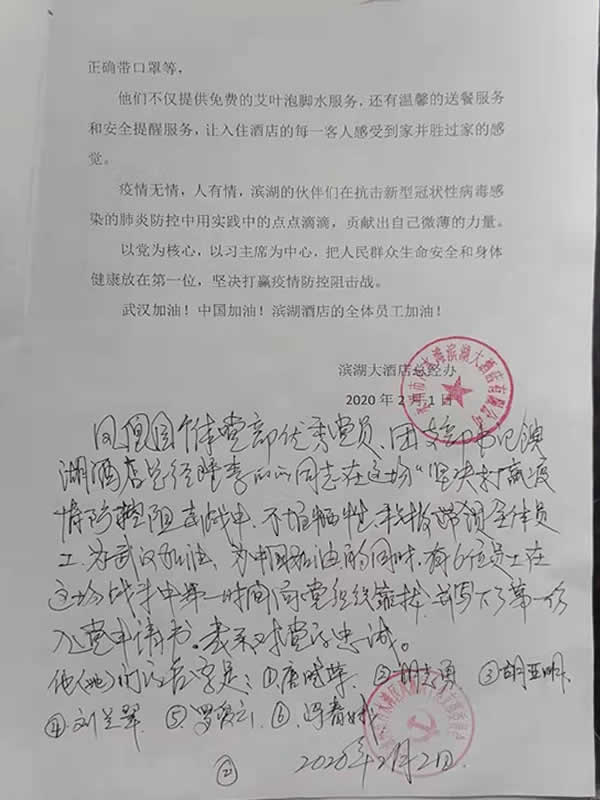 正确带口罩等,
他们不仅提供免费的艾叶泡脚水服务,还有温馨的送餐服务
和安全提醒服务,让入住酒店的每一客人感受到家并胜过家的感
觉。
疫情无情,人有情,滨湖的伙伴们在抗击新型冠状性病毒感
染的肺炎防控中用实践中的点点滴滴,贡献出自己微薄的力量。
以党为核心,以习主席为中心,把人民群众生命安全和身体
健康放在第一位,坚决打赢疫情防控阻击战。
武汉加油!中国加油!滨湖酒店的全体员工加油!
滨湖大酒店总经办
滨湖大酒店有限公司
2020年2月1日
优秀党员、团支部书记滨
湖酒店总经理李 同志在这场“坚决打赢疫
情防控阻击战中,不怕牺牲,积极带领全体员
工,为武汉加油,为中国加油的同时,有6位员工在
这场战斗中第一时间向党组织靠拢,并写下了第一份
入党申请书。表示对党的忠诚。
他(她)们的名字是:①唐晓 ②胡志勇 ③胡亚明、
④刘兰翠 ⑤罗 ⑥冯春
2020年2月2日.
②